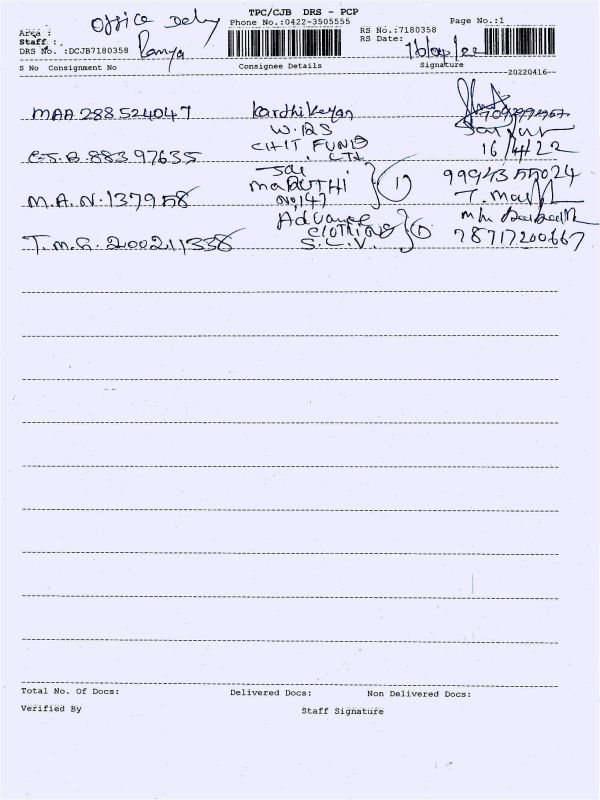 TPC/CJB DRS - PCP
Office Dely
Phone No.:0422-3505555
Page No.:1
Area :
Staff :
RS No.:7180358
RS Date: 16/04/22
DRS No. :DCJB7180358 Ramya
S No Consignment No Consignee Details Signature
--20220416--
MAA 288524047 Kardhikeyan
W.BS
CJB.88397635 CHIT FUND
LTD
16/4/22
Jai
MARUTHI (1) 9994355024
M.A.N.137958 No,147 T. Ma
Advance
CLOTHING (1)
T.M.G.200211338 S.L.V. 78717200667
Total No. Of Docs: Delivered Docs: Non Delivered Docs:
Verified By Staff Signature